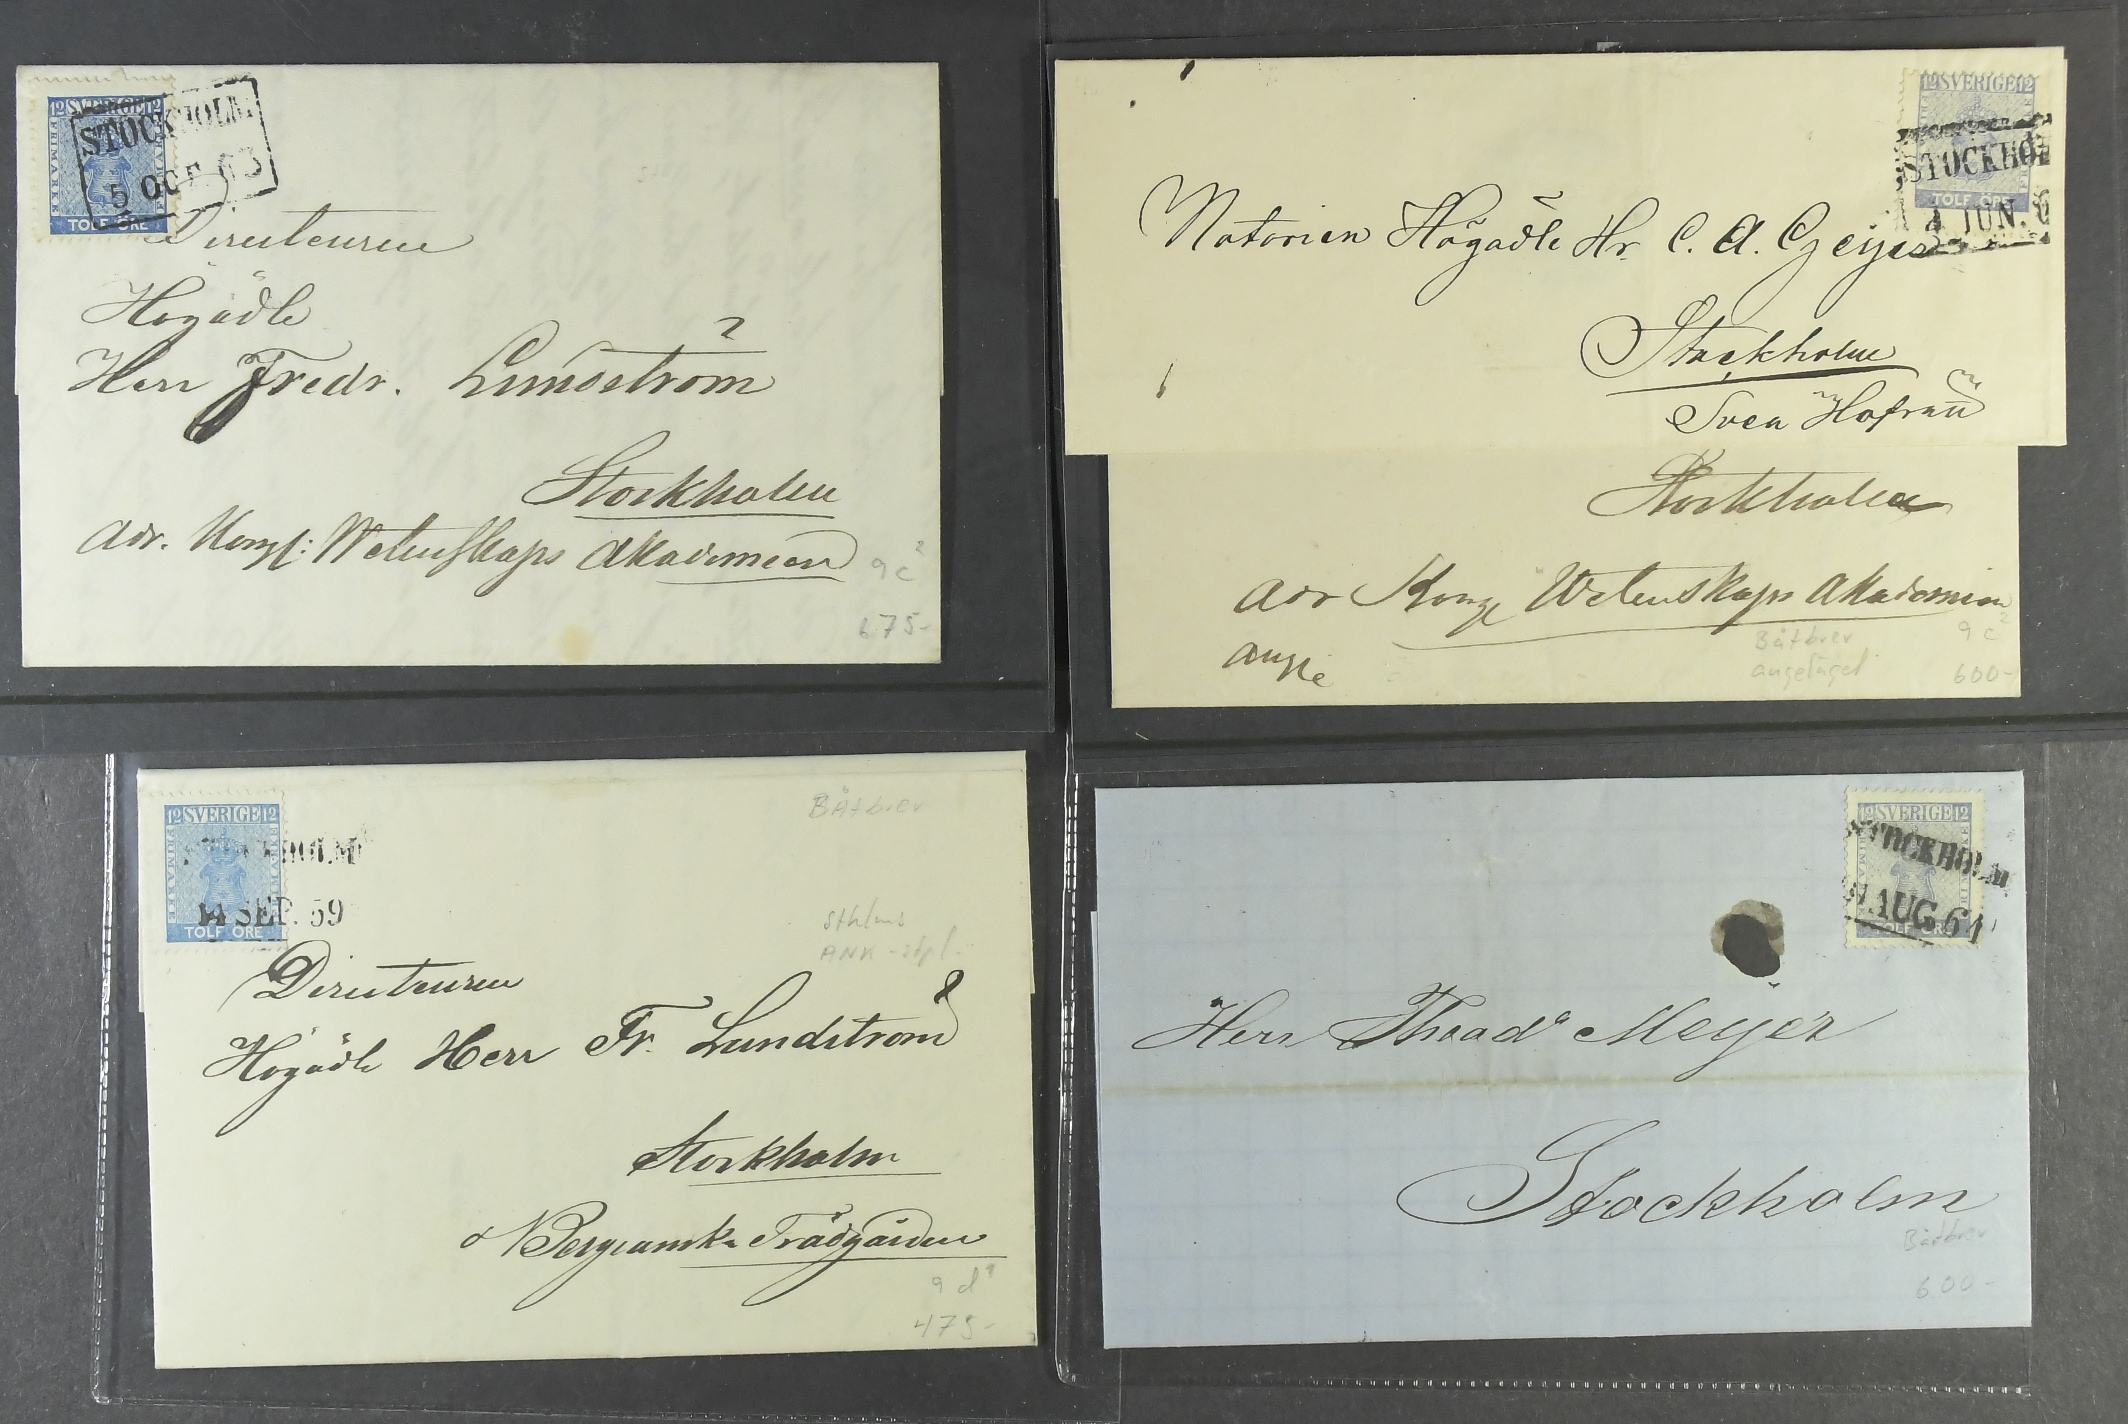 12 SVERIGE 12
FRIMÄRKE
TOLF ÖRE
STOCKHOLM
5 OCT 63
Directeuren
Högädle
Herr Fredr. Lundström
Stockholm
Adr. Kongl: Wetenskaps Akademien
9c²
675-
12 SVERIGE 12
TOLF ÖRE
STOCKHO
2 JUN. 6
Notarien Högädle Hr. C. A. Geijer
Stockholm
Svea Hofrätt
Stockholm
Adr Kongl Wetenskaps Akademien
Båtbrev
9c²
angetågel
600-
12 SVERIGE 12
FRIMÄRKE
TOLF ÖRE
STOCKHOLM
14 SEP. 59
Båtbrev
Sthlms
ANK-stpl.
Directeuren
Högädle Herr Fr. Lundström
Stockholm
Bergianska Trädgården
9d¹
475-
12 SVERIGE 12
TOLF ÖRE
STOCKHOLM
AUG. 61
Herr Theodor Meyer
Stockholm
Båtbrev
600-